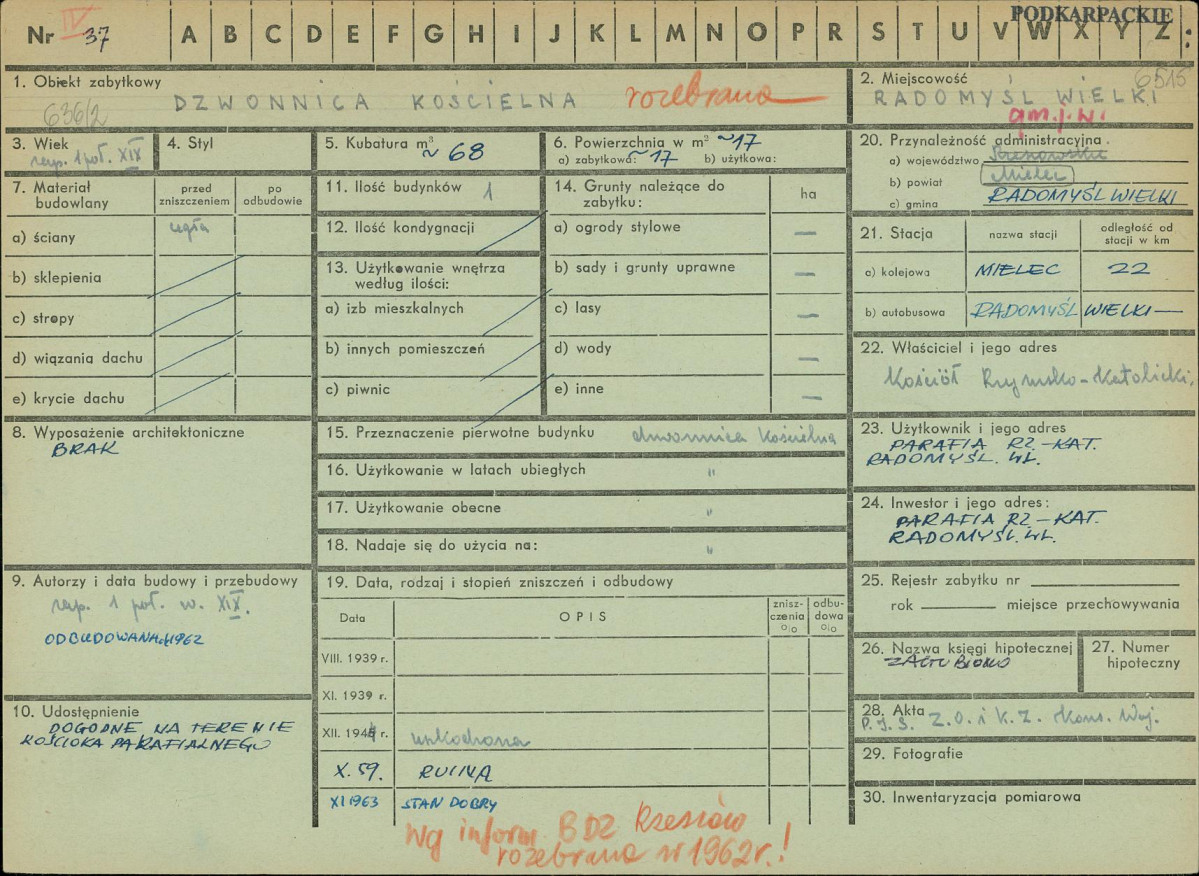 PODKARPACKIE
Nr IV 37 A B C D E F G H I J K L M N O P R S T U V W X Y Z :
1. Obiekt zabytkowy
636/2 DZWONNICA KOŚCIELNA rozebrana
2. Miejscowość 6515
RADOMYŚL WIELKI
gm. j. w.
3. Wiek
zap. 1 poł. XIX
4. Styl
5. Kubatura m³
~ 68
6. Powierzchnia w m² ~17
a) zabytkowa: ~17 b) użytkowa:
7. Materiał budowlany
przed zniszczeniem
po odbudowie
a) ściany cegła
b) sklepienia
c) stropy
d) wiązania dachu
e) krycie dachu
8. Wyposażenie architektoniczne
BRAK
9. Autorzy i data budowy i przebudowy
zap. 1 poł. w. XIX.
ODBUDOWANA 1962
10. Udostępnienie
DOGODNE NA TERENIE
KOŚCIOŁA PARAFIALNEGO
11. Ilość budynków 1
12. Ilość kondygnacji
13. Użytkowanie wnętrza
według ilości:
a) izb mieszkalnych
b) innych pomieszczeń
c) piwnic
14. Grunty należące do
zabytku:
ha
a) ogrody stylowe —
b) sady i grunty uprawne —
c) lasy —
d) wody —
e) inne —
15. Przeznaczenie pierwotne budynku dzwonnica kościelna
16. Użytkowanie w latach ubiegłych "
17. Użytkowanie obecne "
18. Nadaje się do użycia na: "
19. Data, rodzaj i stopień zniszczeń i odbudowy
Data
OPIS
znisz-
czenia
o|o
odbu-
dowa
o|o
VIII. 1939 r.
XI. 1939 r.
XII. 1944 r. uszkodzona
X. 59. RUINA
XI 1963 STAN DOBRY
Wg inform BDZ Rzeszów
rozebrana w 1962 r.!
20. Przynależność administracyjna
a) województwo Rzeszowskie
b) powiat Mielec
c) gmina RADOMYŚL WIELKI
21. Stacja
nazwa stacji
odległość od
stacji w km
a) kolejowa MIELEC 22
b) autobusowa RADOMYŚL WIELKI —
22. Właściciel i jego adres
Kościół Rzymsko-Katolicki,
23. Użytkownik i jego adres
PARAFIA RZ-KAT.
RADOMYŚL. WL.
24. Inwestor i jego adres:
PARAFIA RZ-KAT.
RADOMYŚL. WL.
25. Rejestr zabytku nr
rok miejsce przechowywania
26. Nazwa księgi hipotecznej
ZAGUBIONO
27. Numer
hipoteczny
28. Akta
P.I.S. Z.O.i K.Z. Kons. Woj.
29. Fotografie
30. Inwentaryzacja pomiarowa